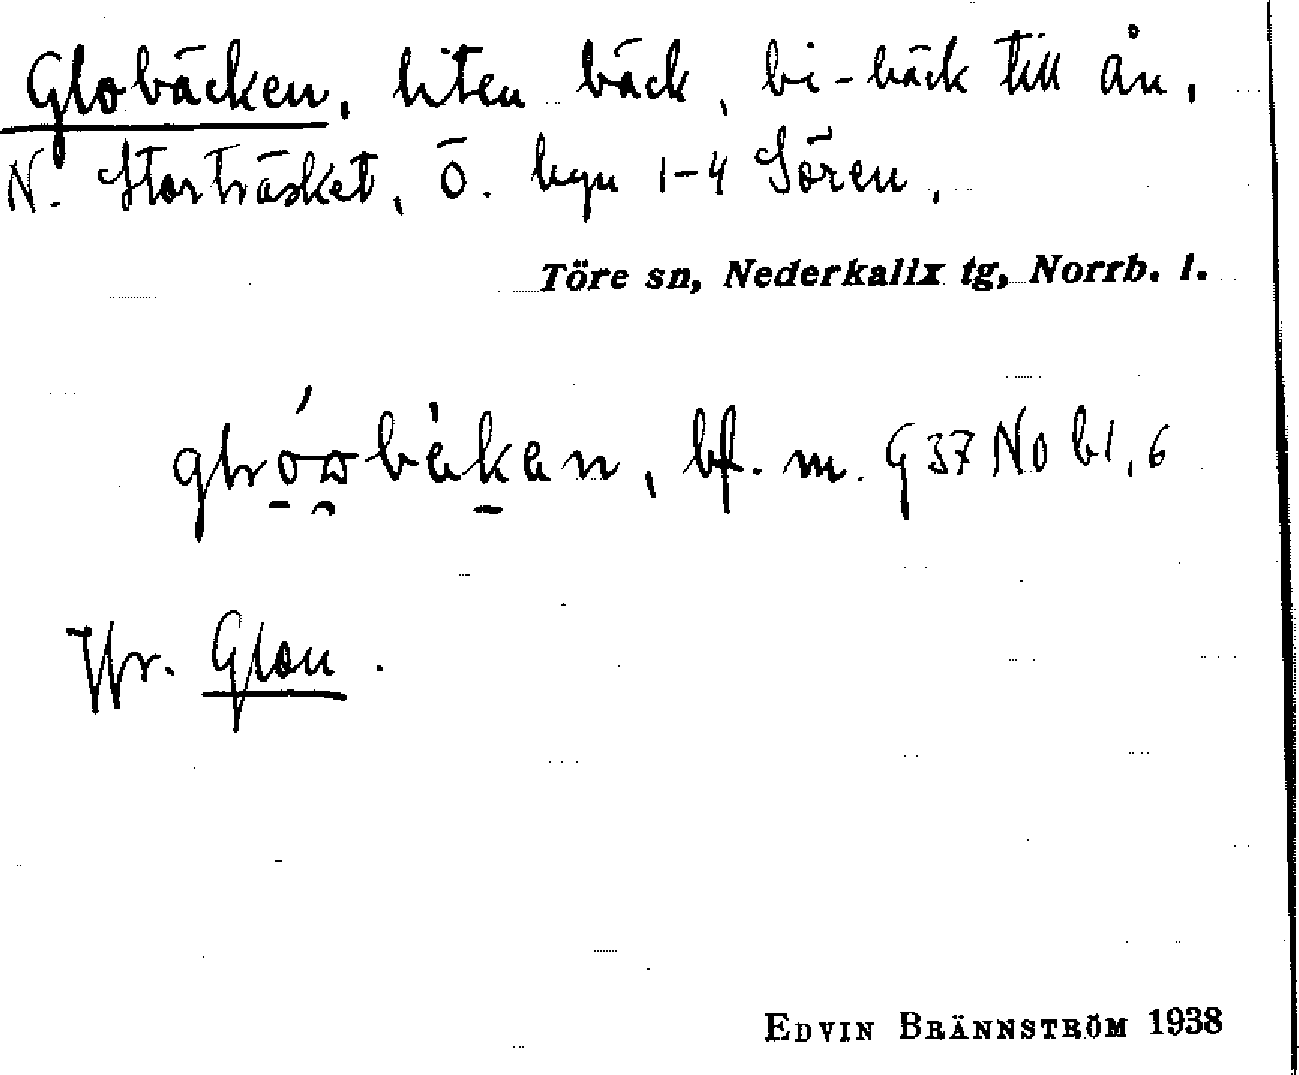 Globäcken, liten bäck, bi-bäck till ån,
N. Storträsket, Ö. byn 1-4 Sören,
Töre sn, Nederkalix tg, Norrb. l.
bf. m. G 37 No bl, 6
Jfr. Glon.
EDVIN BRÄNNSTRÖM 1938